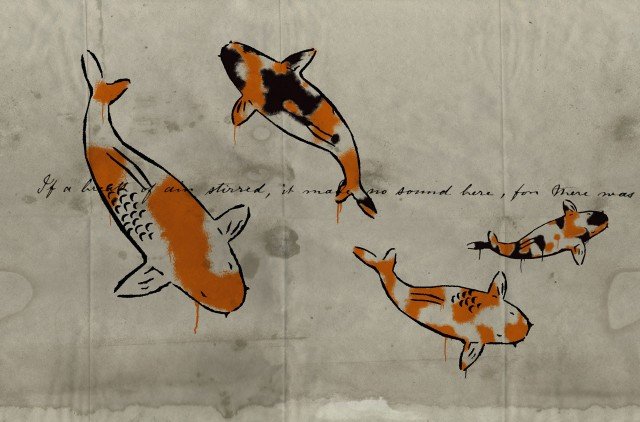 If a breath of air stirred, it made no sound here, for there was